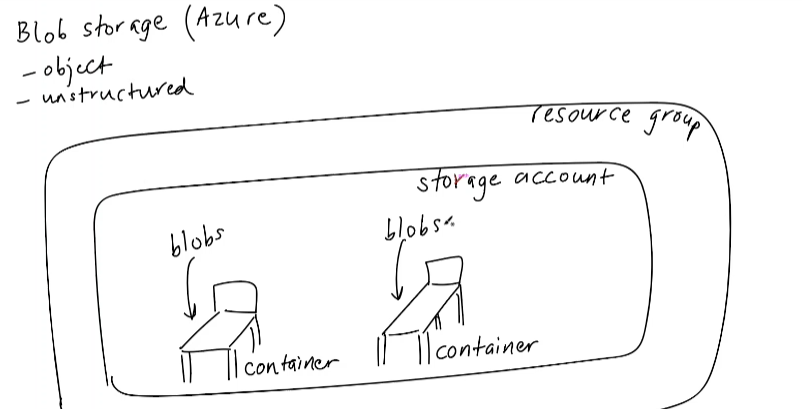 Blob storage (Azure)
- object
- unstructured
resource group
storage account
blobs
blobs
container
container